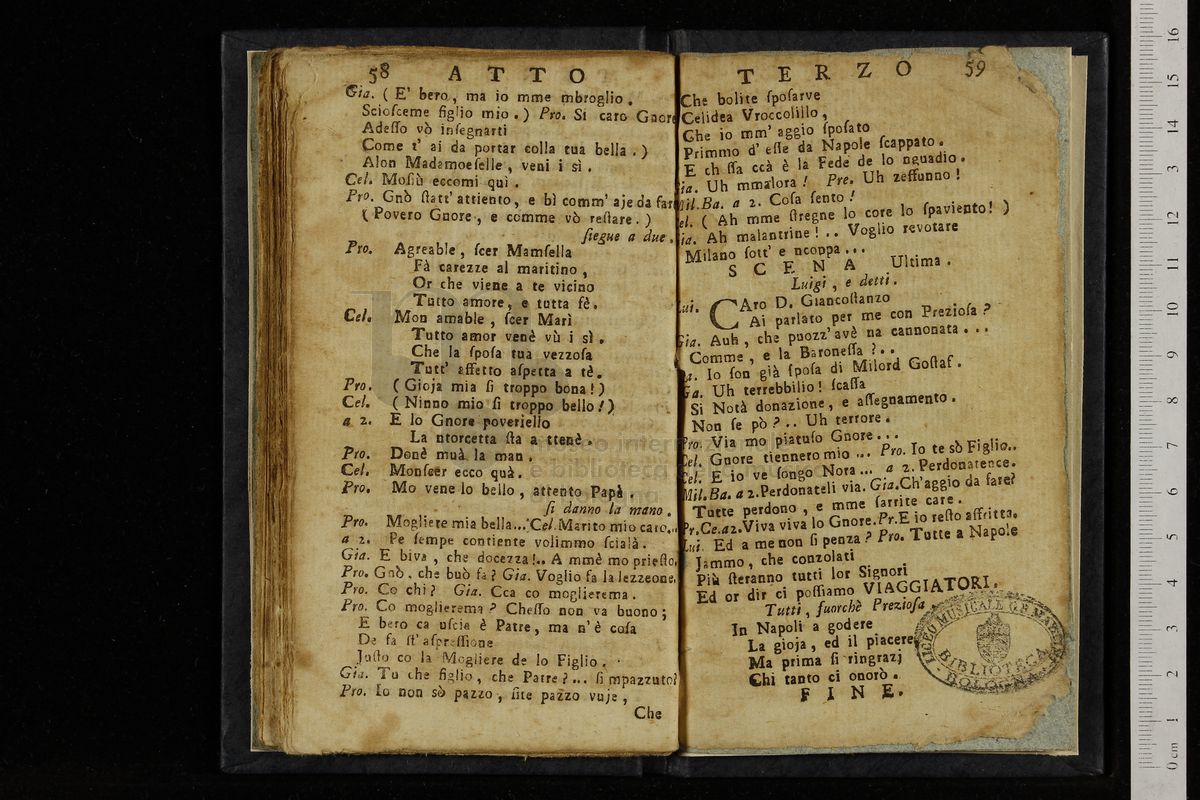 58 ATTO
Gia. ( E' bero, ma io mme mbroglio.
Scioſceme figlio mio.) Pro. Si caro Gnore
Adeſſo vò inſegnarti
Come t' ai da portar colla tua bella.)
Alon Madamoeſelle, veni i sì.
Cel. Moſiù eccomi quì.
Pro. Gnò ſtatt' attiento, e bì comm' aje da fare
( Povero Gnore, e comme vò reſtare. )
ſiegue a due.
Pro. Agreable, ſcer Mamſella
Fà carezze al maritino,
Or che viene a te vicino
Tutto amore, e tutta fè.
Cel. Mon amable, ſcer Marì
Tutto amor venè vù i sì.
Che la ſpoſa tua vezzoſa
Tutt' affetto aſpetta a tè.
Pro. ( Gioja mia ſi troppo bona!)
Cel. ( Ninno mio ſi troppo bello!)
a 2. E lo Gnore poveriello
La ntorcetta ſta a ttenè.
Pro. Donè muà la man.
Cel. Monſeer ecco quà.
Pro. Mo vene lo bello, attento Papà.
ſi danno la mano.
Pro. Mogliere mia bella... Cel. Marito mio caro...
a 2. Pe ſempe contiente volimmo ſcialà.
Gia. E biva, che docezza!.. A mmè mo prieſto.
Pro. Gnò, che buò fa? Gia. Voglio fa la lezzeone.
Pro. Co chi? Gia. Cca co moglierema.
Pro. Co moglierema? Cheſſo non va buono;
E bero ca uſcia è Patre, ma n' è coſa
De fa ſt' aſpreſſione
Juſto co la Mogliere de lo Figlio.
Gia. Tu che figlio, che Patre?... ſi mpazzuto?
Pro. Io non sò pazzo, ſite pazzo vuje,
Che
TERZO 59
Che bolite ſpoſarve
Celidea Vroccolillo,
Che io mm' aggio ſpoſato
Primmo d' eſſe da Napole ſcappato.
E ch ſſa ccà è la Fede de lo nguadio.
ia. Uh mmalora! Pre. Uh zeffunno!
Mil. Ba. a 2. Coſa ſento!
el. ( Ah mme ſtregne lo core lo ſpaviento! )
ia. Ah malantrine!.. Voglio revotare
Milano ſott' e ncoppa...
SCENA Ultima.
Luigi, e detti.
Lui. CAro D. Giancoſtanzo
Ai parlato per me con Prezioſa?
Gia. Auh, che puozz' avè na cannonata...
Comme, e la Baroneſſa?..
a. Io ſon già ſpoſa di Milord Goſtaf.
Ga. Uh terrebbilio! ſcaſſa
Si Notà donazione, e aſſegnamento.
Non ſe pò?.. Uh terrore.
Pro. Via mo piatuſo Gnore...
Cel. Gnore tiennero mio... Pro. Io te sò Figlio..
Cel. E io ve ſongo Nora... a 2. Perdonatence.
Mil. Ba. a 2. Perdonateli via. Gia. Ch'aggio da fare?
Tutte perdono, e mme ſarrite care.
Pr. Ce. a 2. Viva viva lo Gnore. Pr. E io reſto affritta.
Lui. Ed a me non ſi penza? Pro. Tutte a Napole
Jammo, che conzolati
Più ſteranno tutti lor Signori
Ed or dir ci poſſiamo VIAGGIATORI.
Tutti, fuorchè Prezioſa.
In Napoli a godere
La gioja, ed il piacere
Ma prima ſi ringrazj
Chi tanto ci onorò.
FINE.
LICEO MUSICALE G.B. MARTINI
BIBLIOTECA
BOLOGNA
0 cm 1 2 3 4 5 6 7 8 9 10 11 12 13 14 15 16